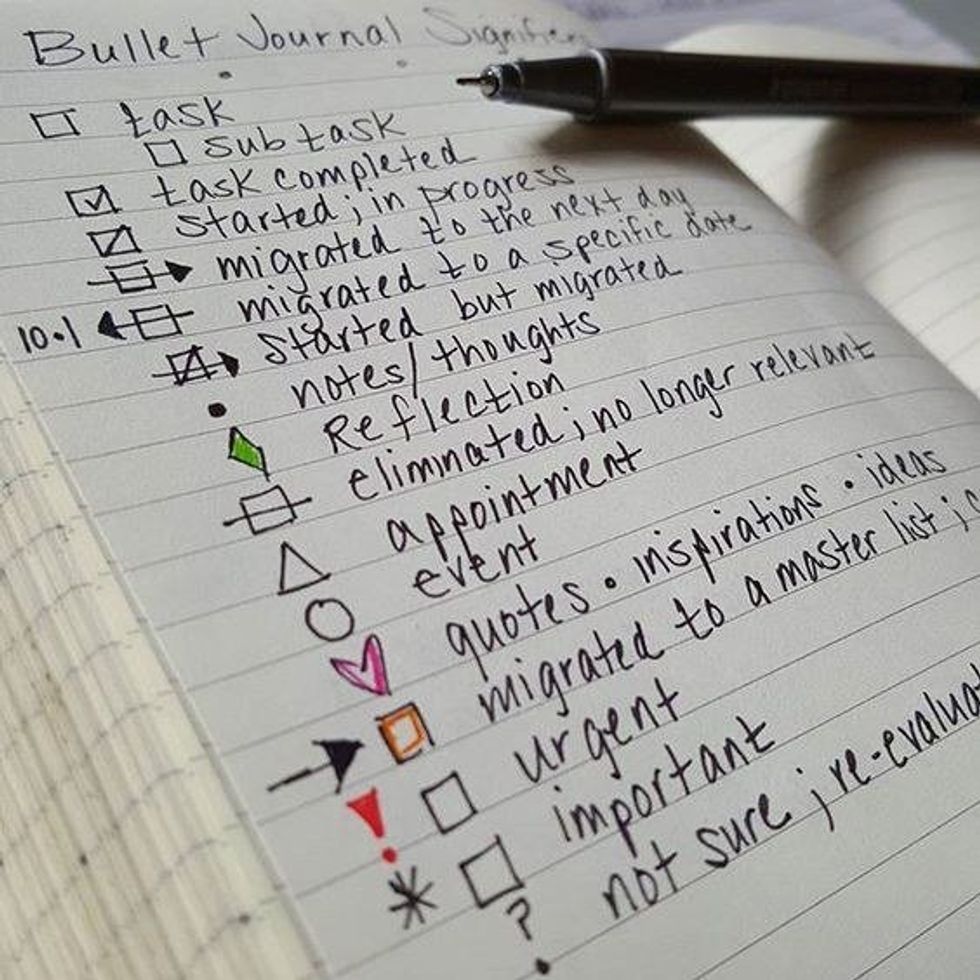 Bullet Journal
task
sub task
task completed
started; in progress
migrated to the next day
migrated to a specific date
10.1
started but migrated
notes/thoughts
Reflection
elimnated; no longer relevant
appointment
event
quotes • inspirations • ideas
migrated to a master list;
! urgent
* important
? not sure;